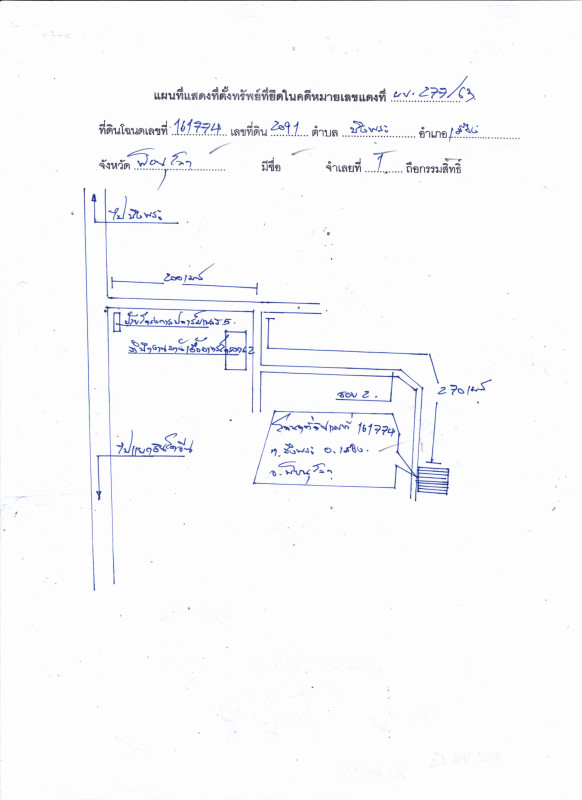 แผนที่แสดงที่ตั้งทรัพย์ที่ยึดในคดีหมายเลขแดงที่ ผบ. 277/63
ที่ดินโฉนดเลขที่ 161774 เลขที่ดิน 2091 ตำบล บึงพระ อำเภอ เมือง
จังหวัด พิษณุโลก มีชื่อ จำเลยที่ 1 ถือกรรมสิทธิ์
ไปบึงพระ
200 เมตร
ป้ายโครงการ
ซอย 2
270 เมตร
โฉนดที่ดินเลขที่ 161774
ต.บึงพระ อ.เมือง
จ.พิษณุโลก
ไปแยกอินโดจีน